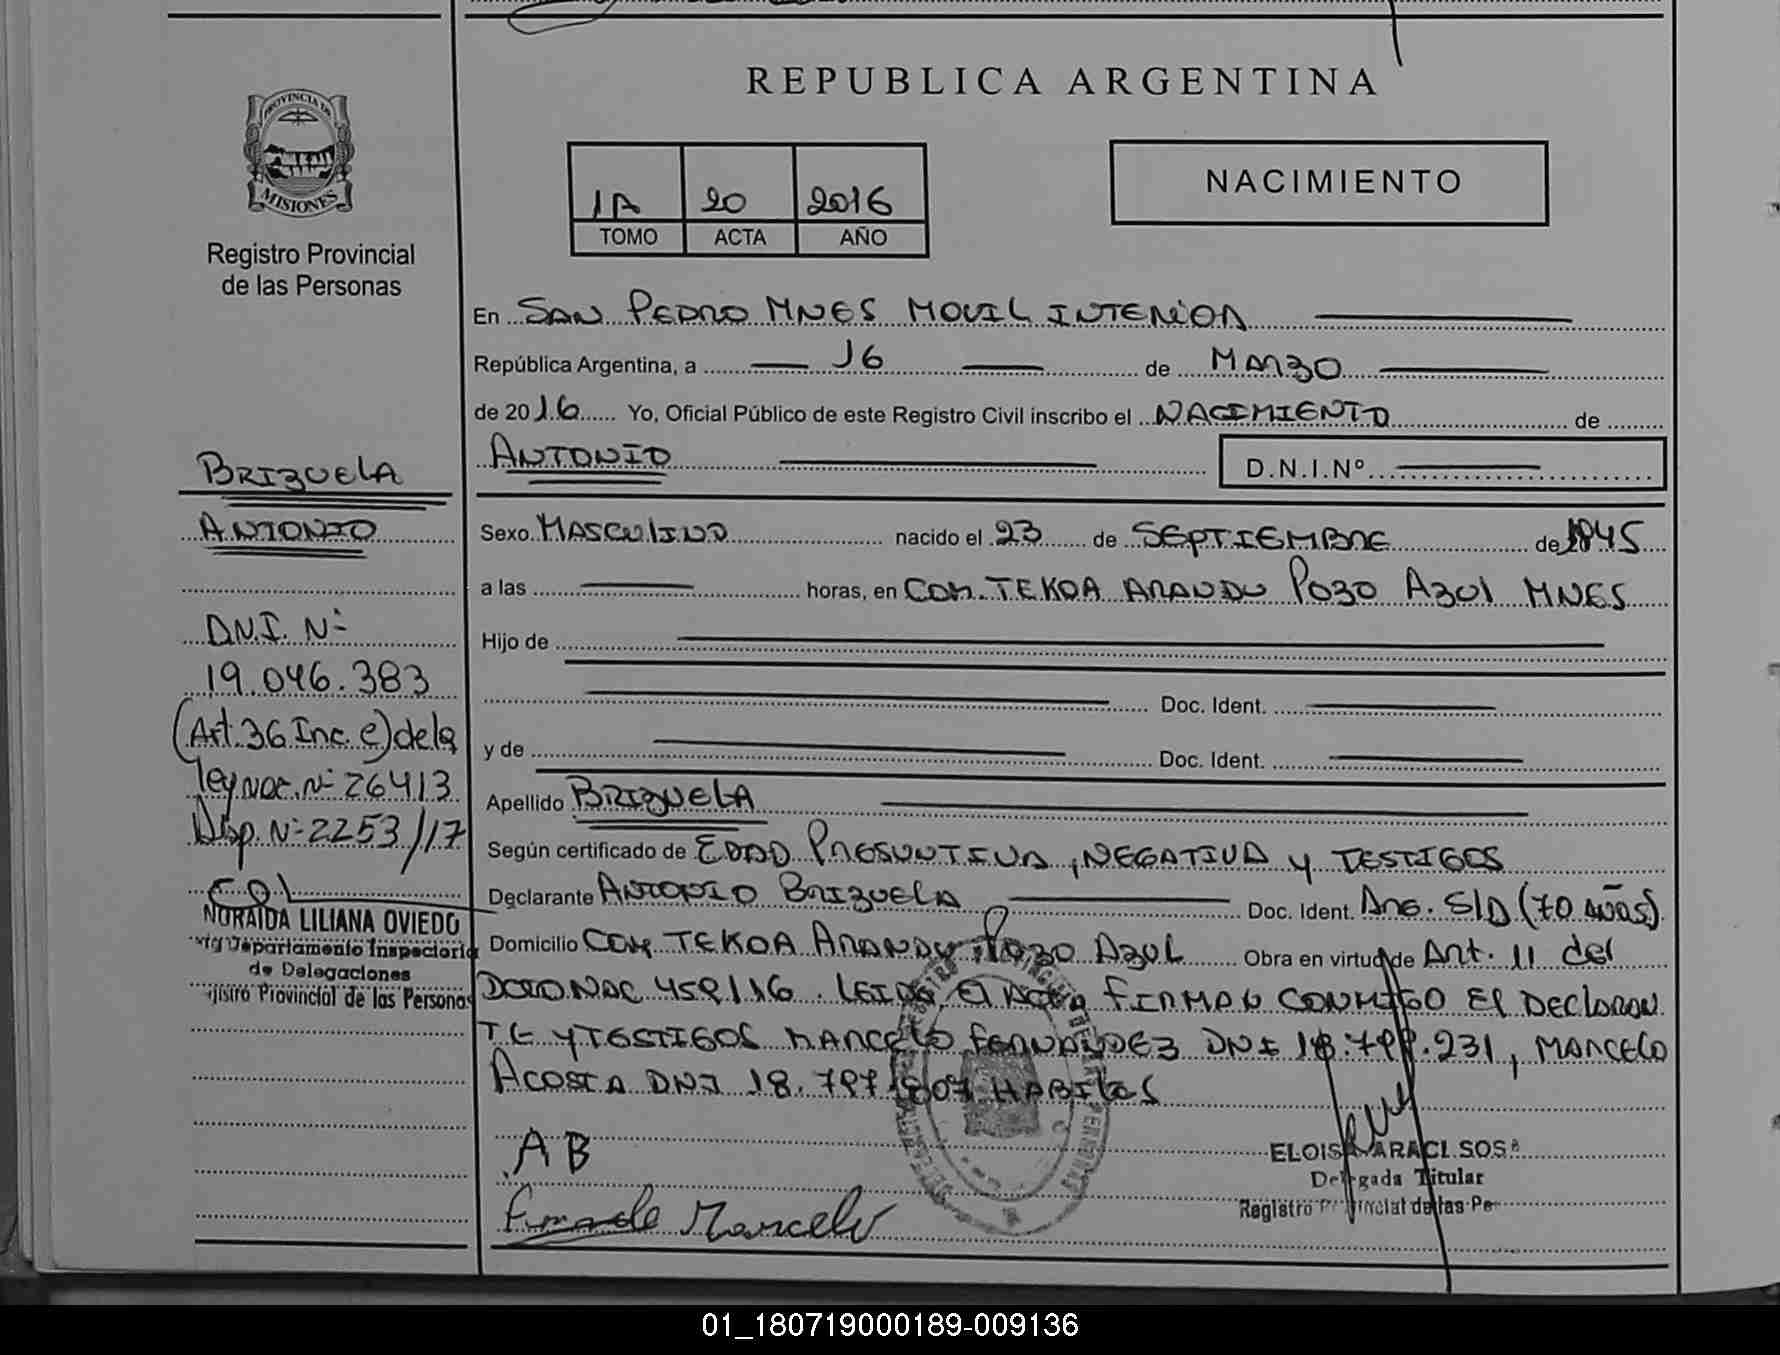 REPUBLICA ARGENTINA
PROVINCIA DE
MISIONES
Registro Provincial
de las Personas
1A 20 2016
TOMO ACTA AÑO
NACIMIENTO
En SAN PEDRO MNES MOVIL INTERIOR
República Argentina, a 16 de MARZO
de 2016 Yo, Oficial Público de este Registro Civil inscribo el NACIMIENTO de
ANTONIO D.N.I.Nº
BRIZUELA
ANTONIO
D.N.I. Nº
19.046.383
(Art. 36 Inc. e) de la
ley nac. Nº 26413
Disp. Nº 2253/17
NORAIDA LILIANA OVIEDO
Departamento Inspectoria
de Delegaciones
Registro Provincial de las Personas
Sexo MASCULINO nacido el 23 de SEPTIEMBRE de 1945
a las horas, en COM. TEKOA ARANDU POZO AZUL MNES
Hijo de
Doc. Ident.
y de Doc. Ident.
Apellido BRIZUELA
Según certificado de EDAD PRESUNTIVA, NEGATIVA Y TESTIGOS
Declarante ANTONIO BRIZUELA Doc. Ident. ARG. S/D (70 AÑOS).
Domicilio COM. TEKOA ARANDU POZO AZUL Obra en virtud de ART. 11 del
NAC 459/16. LEIDA EL ACTA FIRMAN CONMIGO EL DECLARAN
TE Y TESTIGOS MARCELO FERNANDEZ DNI 231, MARCELO
ACOSTA DNI 18.797.807 HABILES
AB
Marcelo
ELOISA ARACI SOSA
Delegada Titular
Registro Provincial de las Pe
01_180719000189-009136